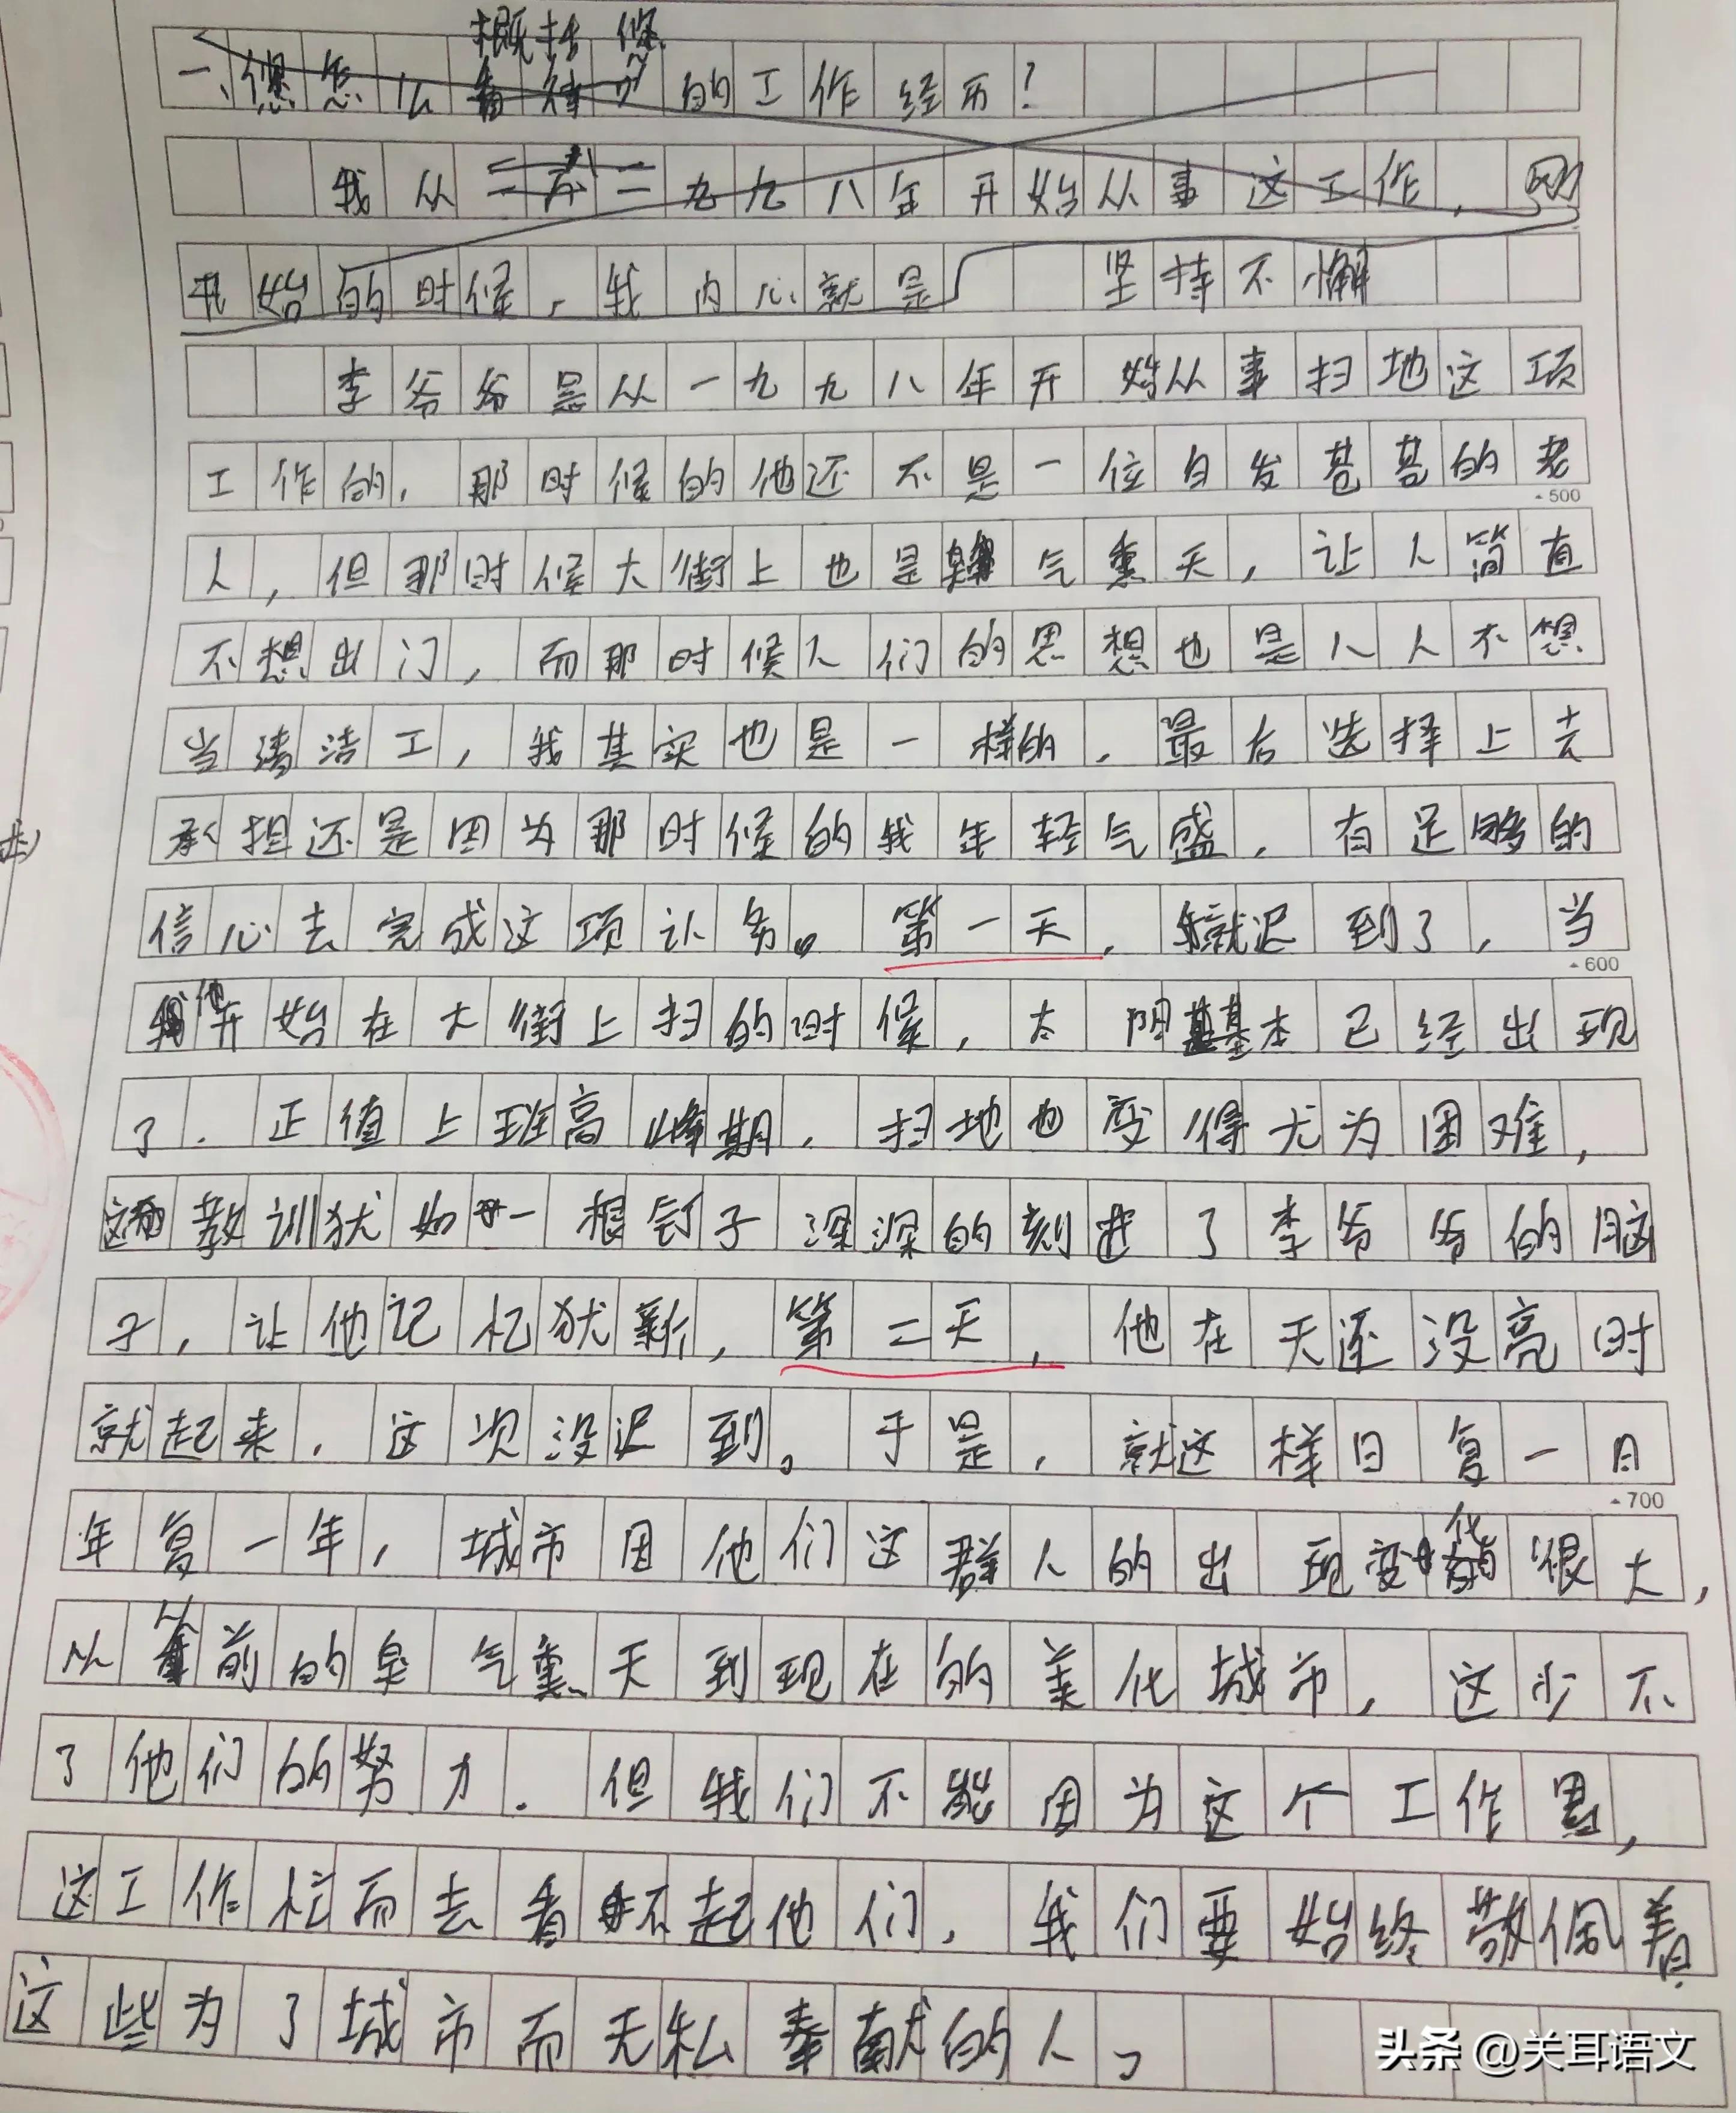 概括 您
一、您怎么看待 的工作经历?
我从二 二九九八年开始从事这工作,刚
开始的时候,我内心就是 坚持不懈
李爷爷是从一九九八年开始从事扫地这项
工作的,那时候的他还不是一位白发苍苍的老
500
人,但那时候大街上也是臭气熏天,让人简直
不想出门,而那时候人们的思想也是人人不想
当清洁工,我其实也是一样的,最后选择上去
承担还是因为那时候的我年轻气盛,有足够的
信心去完成这项认务。第一天,就迟到了,当
600
他开始在大街上扫的时候,太阳基本已经出现
了.正值上班高峰期,扫地也变得尤为困难,
这教训犹如一根钉子深深的刻进了李爷爷的脑
子,让他记忆犹新,第二天,他在天还没亮时
就起来,这次没迟到。于是,就这样日复一日
700
年复一年,城市因他们这群人的出现变化很大,
从 前的臭气熏天到现在的美化城市,这少不
了他们的努力.但我们不能因为这个工作累,
这工作忙而去看不起他们,我们要始终敬佩着
这些为了城市而无私奉献的人。
头条 @关耳语文